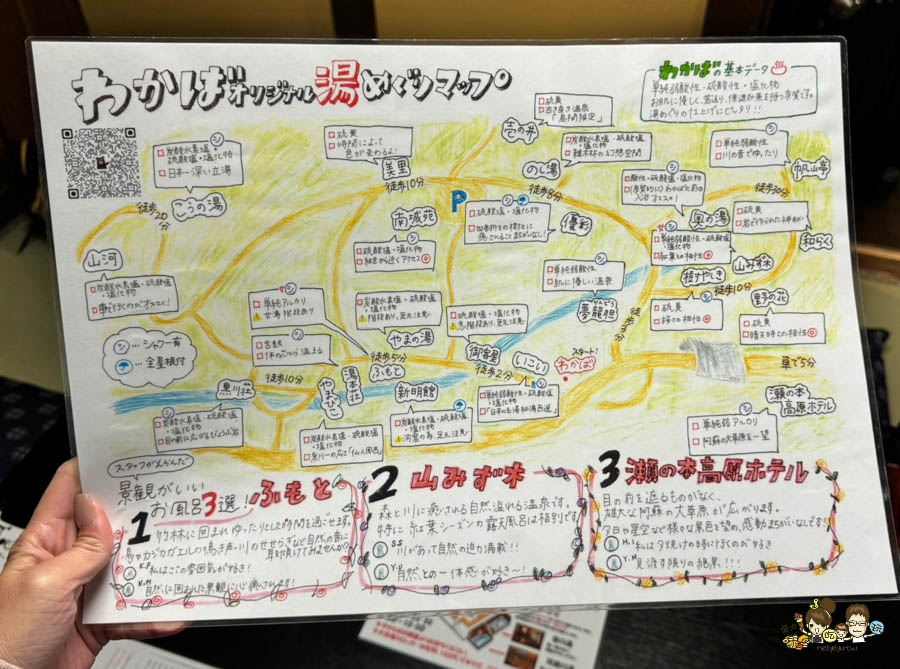 わかばオリジナル湯めぐりマップ
わかばの基本データ
単純弱酸性・硫酸塩・塩化物
お肌に優しく、若返り、保湿効果を持つ泉質です。
湯めぐりの仕上げにピッタリ!!
シ
炭酸水素塩・
硫酸塩・塩化物
日本一深い立湯
こうの湯
徒歩20分
山河
炭酸水素塩・硫酸塩
・塩化物
車で行くのがオススメ!
シ…シャワー有
…全屋根付
硫黄
時間によって
色が変わるよ!
美里
徒歩10分
硫黄
吉き良き温泉
「昼間限定」
壱の井
徒歩8分
炭酸水素塩・硫酸塩
・塩化物
雑木林の幻想空間
のし湯
シ
単純弱酸性
川の音でゆったり
帆山亭
徒歩30分
シ
酸性・硫酸塩・塩化物
奥の湯
硫黄
和らく
P
南城苑
シ
硫酸塩・塩化物
シ
硫酸塩・塩化物
癒されることまちがいなし!
優彩
シ
単純弱酸性・硫酸塩
・塩化物
紅葉との相性◎
山みず木
シ
単純弱酸性
肌に優しい温泉
夢龍胆
樅やしき
徒歩10分
シ
硫黄
桜との相性◎
野の花
硫黄
晴天時との相性◎
徒歩7分
車で5分
シ
単純アルカリ
女湯階段あり
シ
炭酸水素塩・硫酸塩
・塩化物
階段あり、足元注意
やまの湯
硫酸塩・塩化物
階段あり、足元注意
御客屋
いこい
スタート!
わかば
徒歩5分
徒歩2分
ふもと
体の心から温まる
徒歩10分
黒川荘
やまびこ
湯本荘
新明館
シ
炭酸水素塩・硫酸塩
・塩化物
目の前に広がるびょうぶ岩
シ
炭酸水素塩・硫酸塩
・塩化物
黒川一の広さ「仙人風呂」
炭酸水素塩・硫酸塩
・塩化物
河雲の為、足元注意
シ
単純弱酸性・硫酸塩
・塩化物
日本の名湯秘湯百選
瀬の本
高原ホテル
シ
単純弱アルカリ
阿蘇の大草原を一望
スタッフがえらんだ
景観がいい
お風呂3選!
1 ふもと
竹林に囲まれゆったりとした時間を過ごせます。
鳥やカジカガエルの鳴き声・川のせせらぎなど自然の音に
耳を傾けてみませんか?
K.F 私はこの雰囲気が好き!
N.H 自然に囲まれた景観に心ど癒されます!
2 山みず木
森と川に癒される自然溢れる温泉です。
特に紅葉シーズンの露天風呂は格別です
S.S 川があって自然の迫力満載!!
Y.U 自然との一体感が好き〜!
3 瀬の本高原ホテル
目の前を遮るものがなく、
雄大な阿蘇の大草原が広がります。
夕日や星空など様々な景色を望め、感動まちがいなしです!
H.I 私は夕焼けの時に行くのが好き
Y.M 見渡す限りの絶景!!!
nellydyu.tw